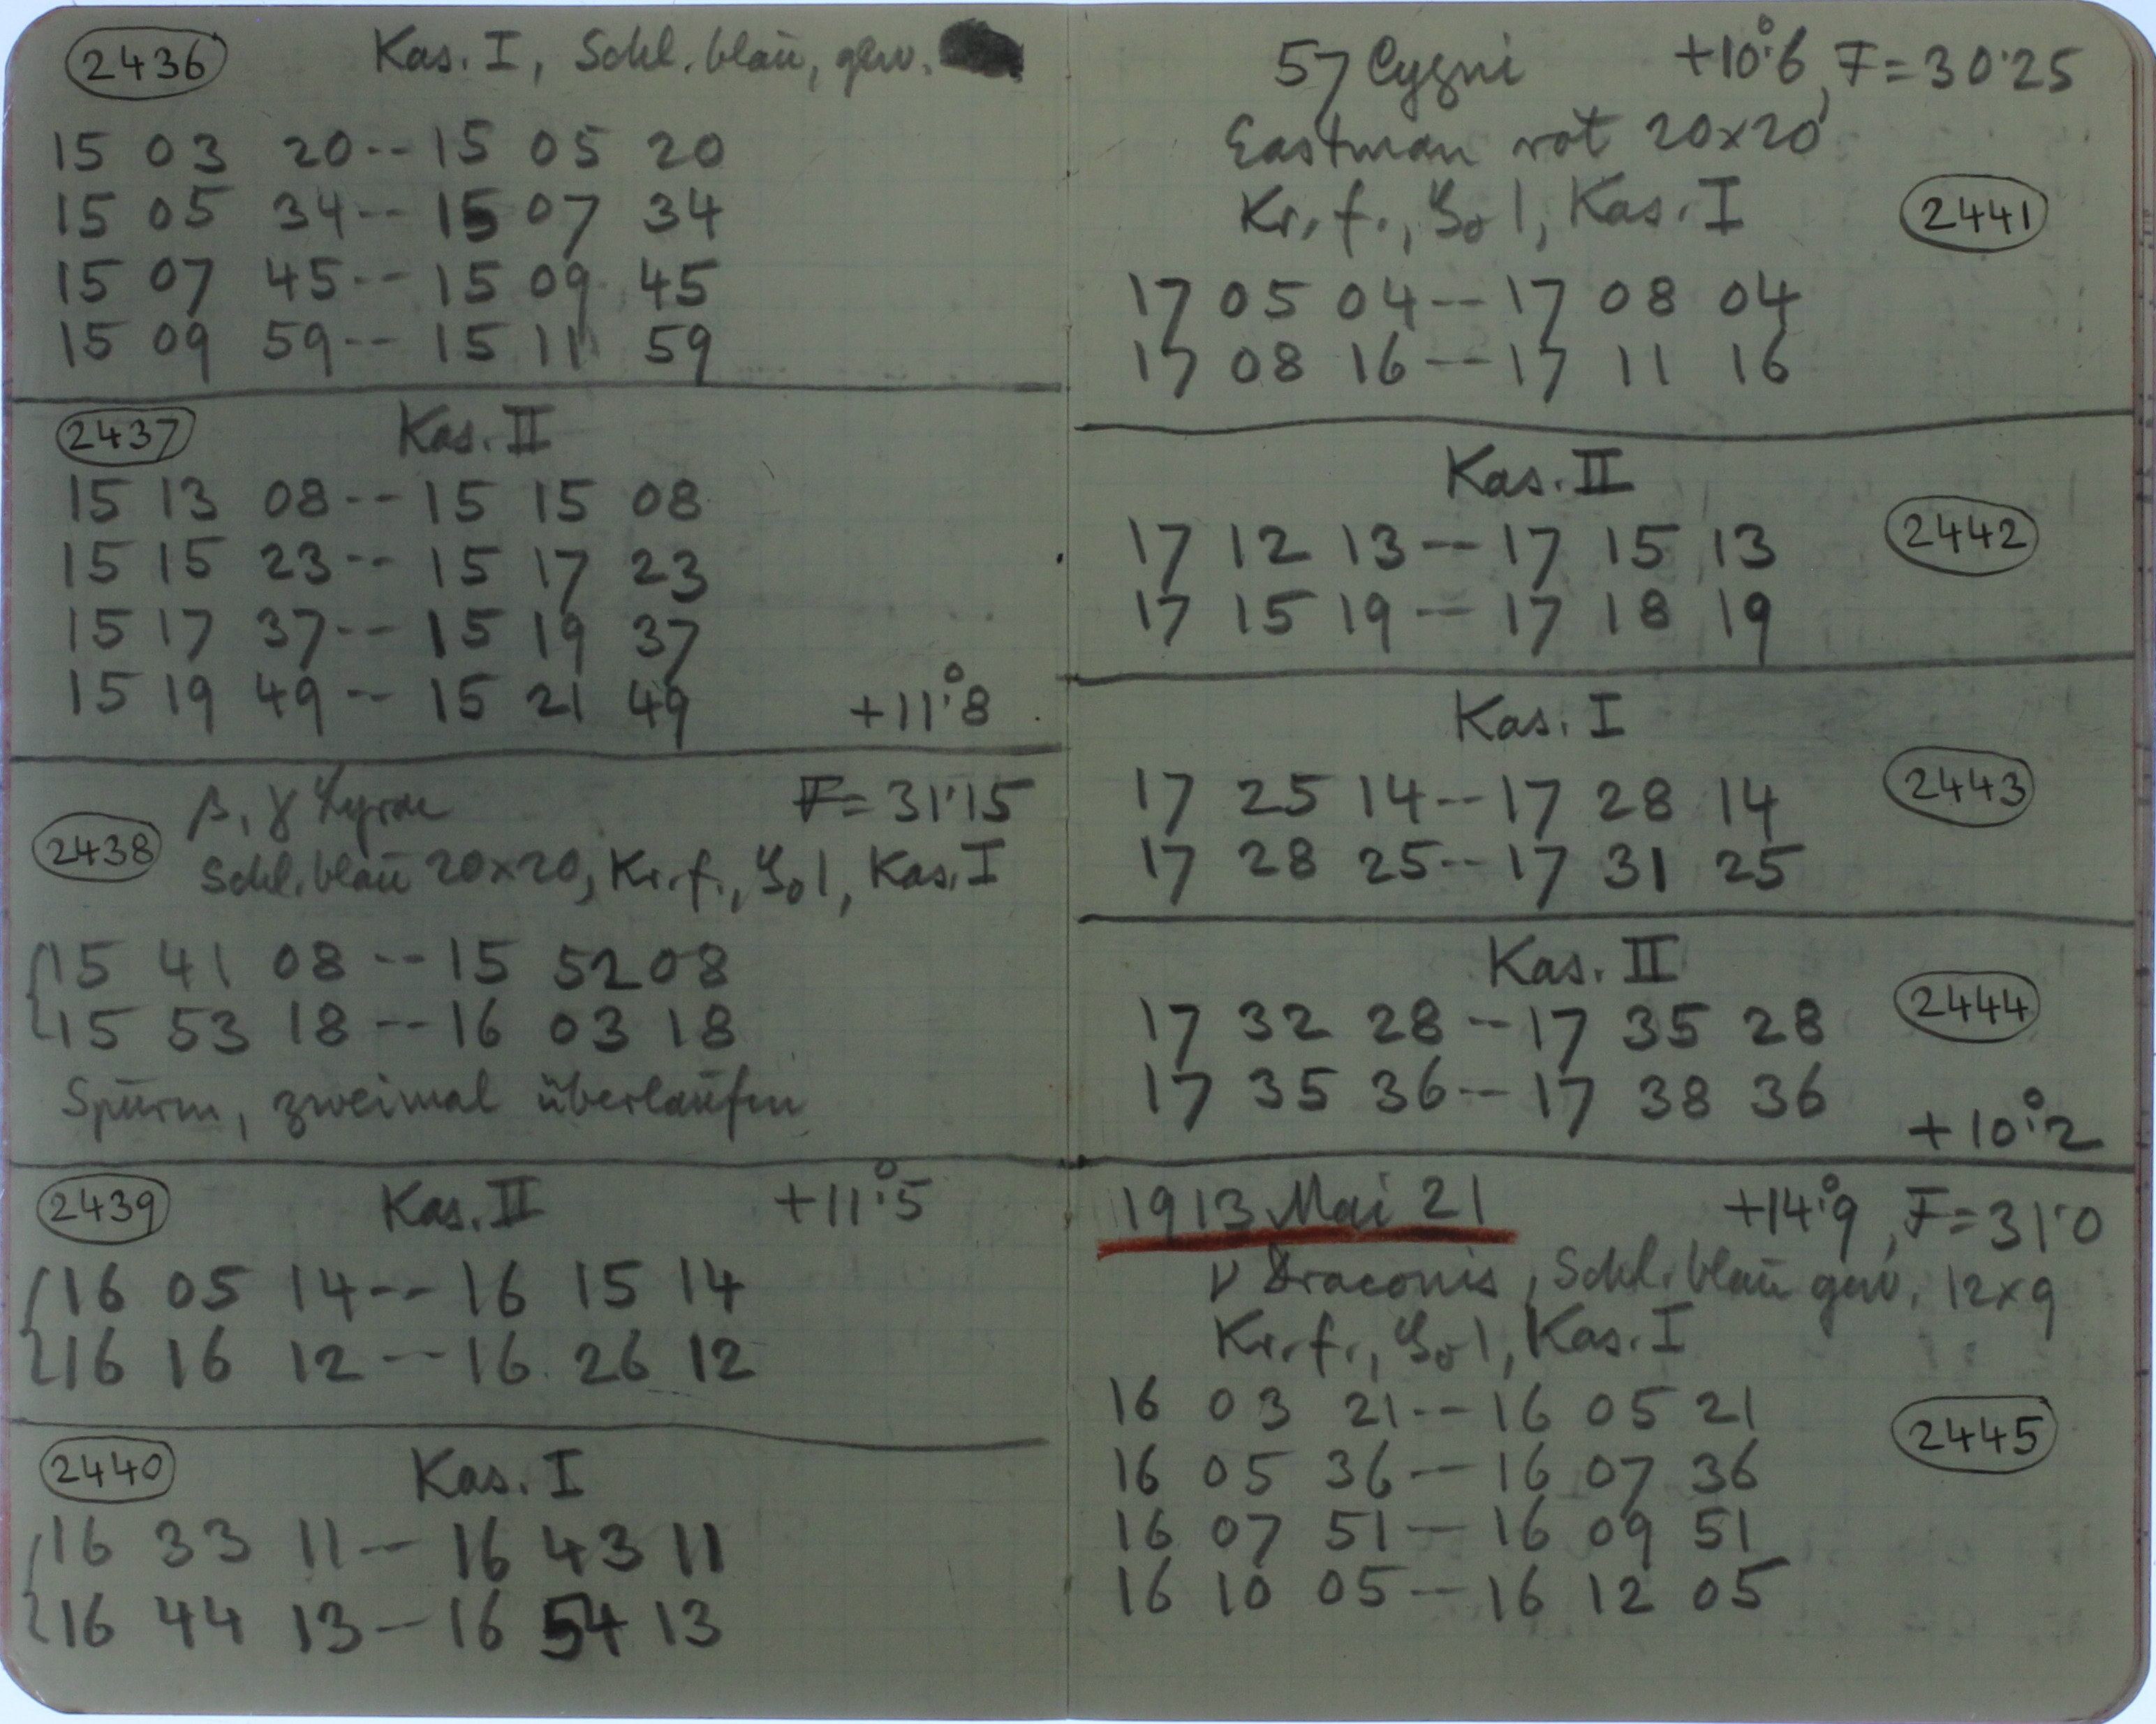 2436 Kas. I, Schl. blau, gew.
15 03 20 -- 15 05 20
15 05 34 -- 15 07 34
15 07 45 -- 15 09 45
15 09 59 -- 15 11 59
2437 Kas. II
15 13 08 -- 15 15 08
15 15 23 -- 15 17 23
15 17 37 -- 15 19 37
15 19 49 -- 15 21 49 +11°.8
β, γ Lyrae F = 31.15
2438 Schl. blau 20×20, Kr. f., 1, Kas. I
15 41 08 -- 15 52 08
15 53 18 -- 16 03 18
Spuren, zweimal überlaufen
2439 Kas. II +11°.5
16 05 14 -- 16 15 14
16 16 12 -- 16 26 12
2440 Kas. I
16 33 11 -- 16 43 11
16 44 13 -- 16 54 13
57 Cygni +10°.6, F = 30.25
Eastman rot 20×20
Kr. f., 1, Kas. I 2441
17 05 04 -- 17 08 04
17 08 16 -- 17 11 16
Kas. II
17 12 13 -- 17 15 13 2442
17 15 19 -- 17 18 19
Kas. I
17 25 14 -- 17 28 14 2443
17 28 25 -- 17 31 25
Kas. II
17 32 28 -- 17 35 28 2444
17 35 36 -- 17 38 36
+10°.2
1913 Mai 21 +14°.9, F = 31.0
ν Draconis, Schl. blau gew. 12×9
Kr. f., 1, Kas. I
16 03 21 -- 16 05 21 2445
16 05 36 -- 16 07 36
16 07 51 -- 16 09 51
16 10 05 -- 16 12 05